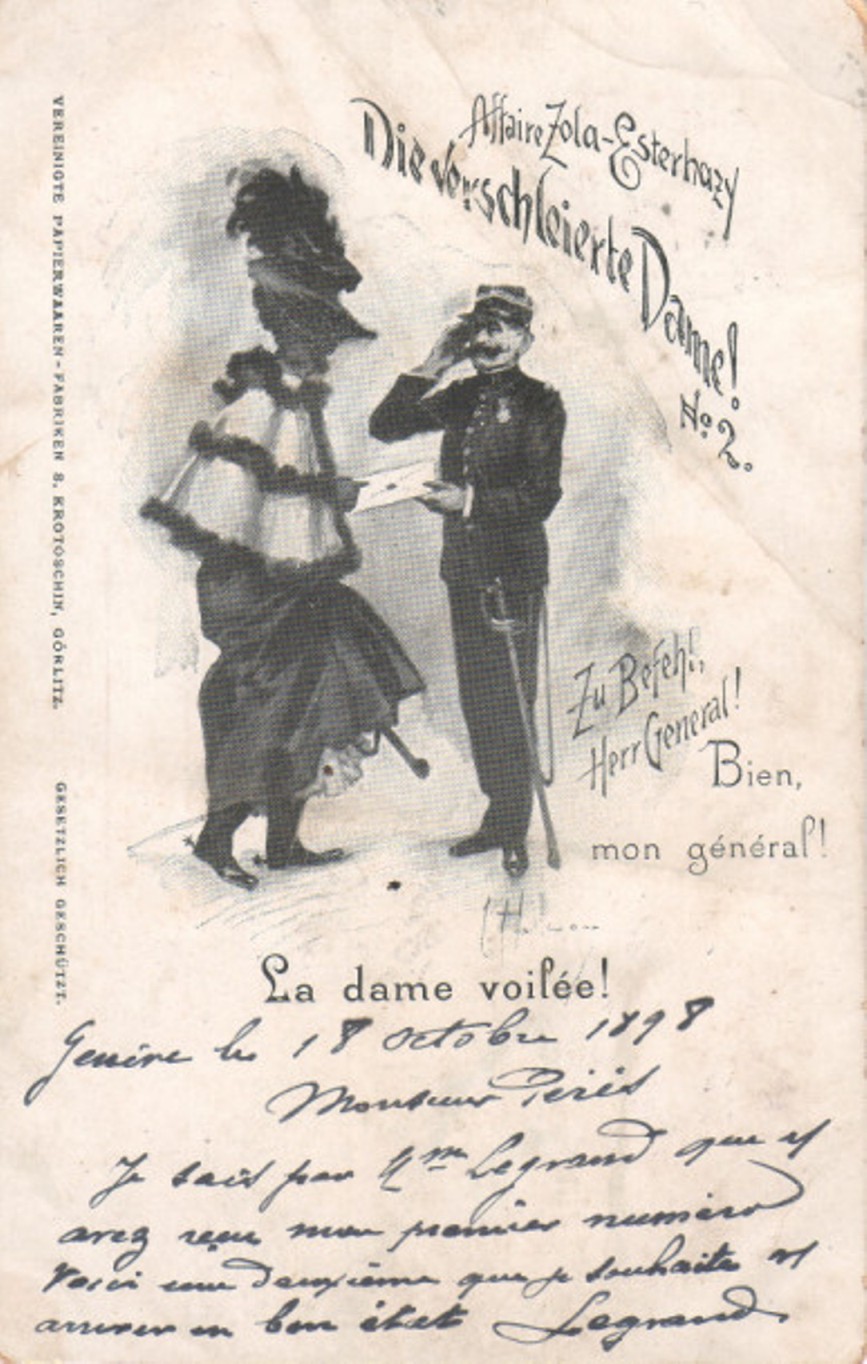 Affaire Zola-Esterhazy
Die verschleierte Dame!
No. 2.
VEREINIGTE PAPIERWAAREN-FABRIKEN S. KROTOSCHIN, GÖRLITZ.
GESETZLICH GESCHÜTZT.
Zu Befehl,
Herr General!
Bien,
mon général!
La dame voilée!
Genève le 18 octobre 1898
Monsieur
Je sais par Legrand que
avez reçu mon premier numéro
Voici une deuxième que je souhaite
arriver en bon état Legrand